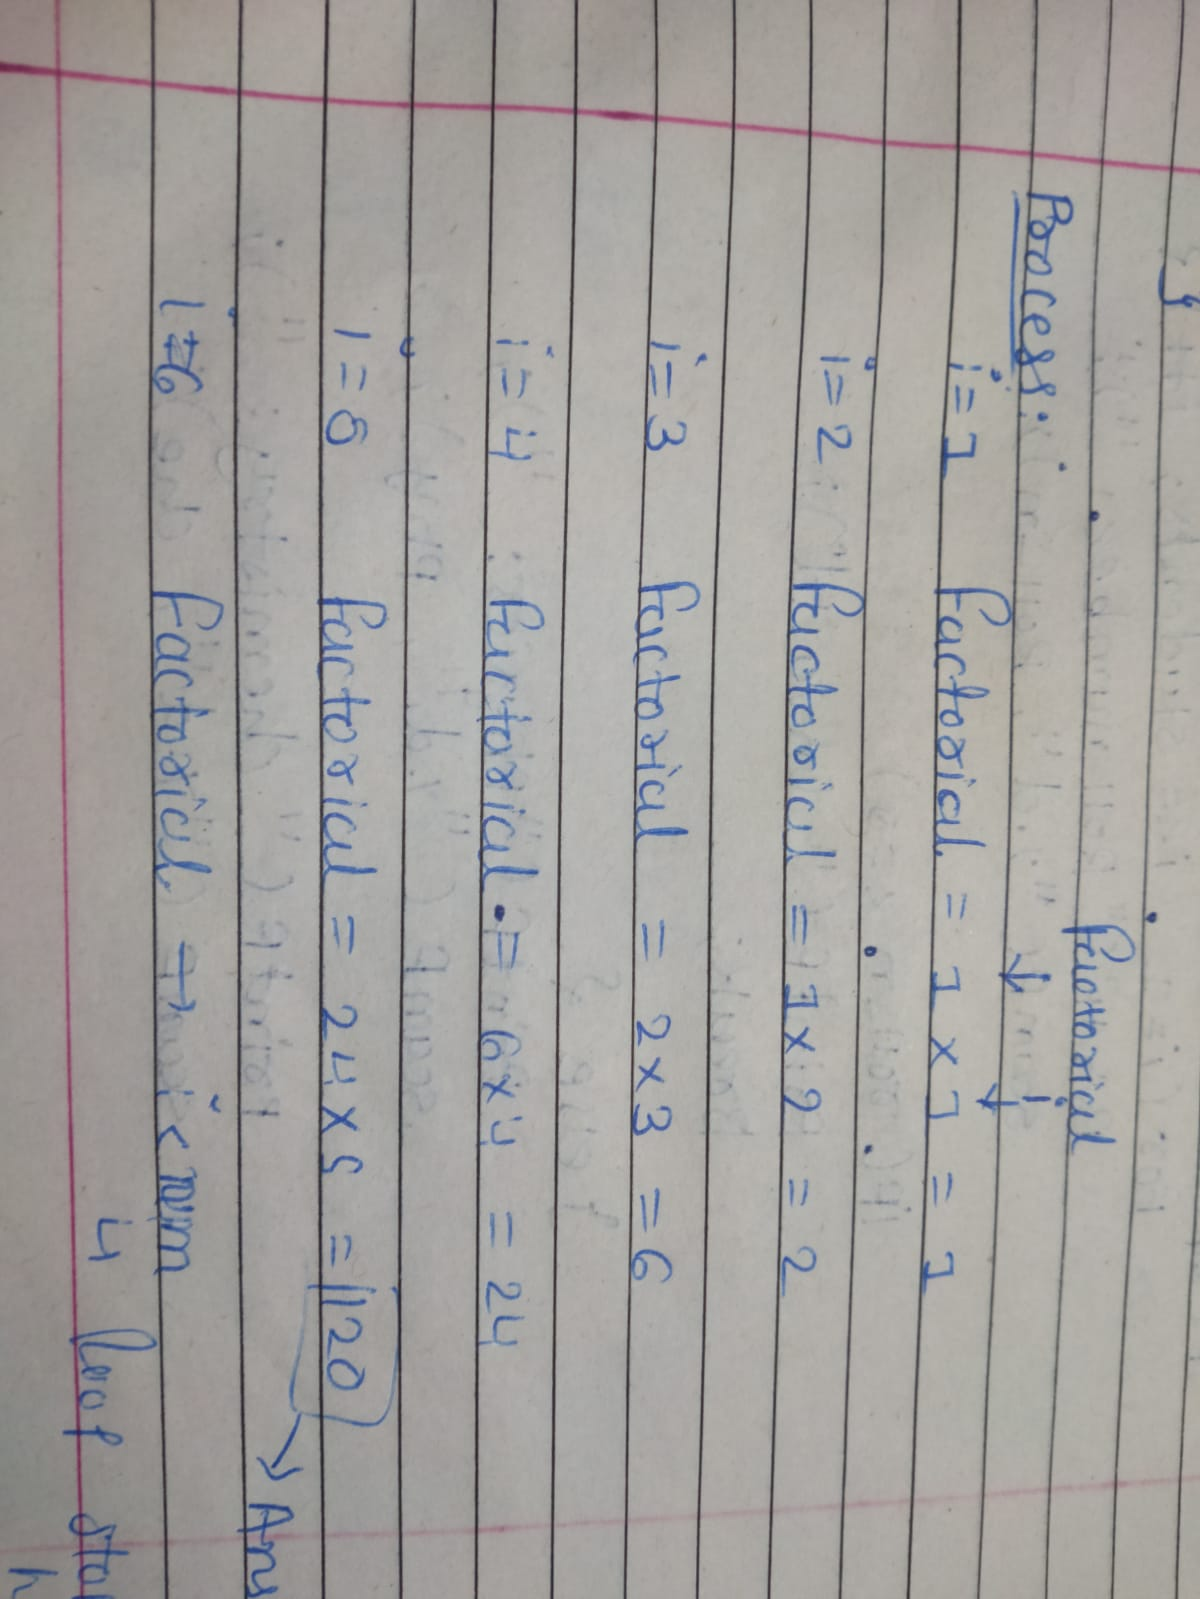 }
factorial
Process:
i=1 factorial = 1 × 1 = 1
i=2 factorial = 1 × 2 = 2
i=3 factorial = 2×3 = 6
i=4 factorial = 6×4 = 24
i=5 factorial = 24×5 = 120
→ Ans
i=6 factorial → i < num
↳ loop